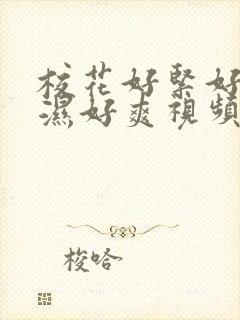 校花好緊好
濕好爽視頻
梭哈